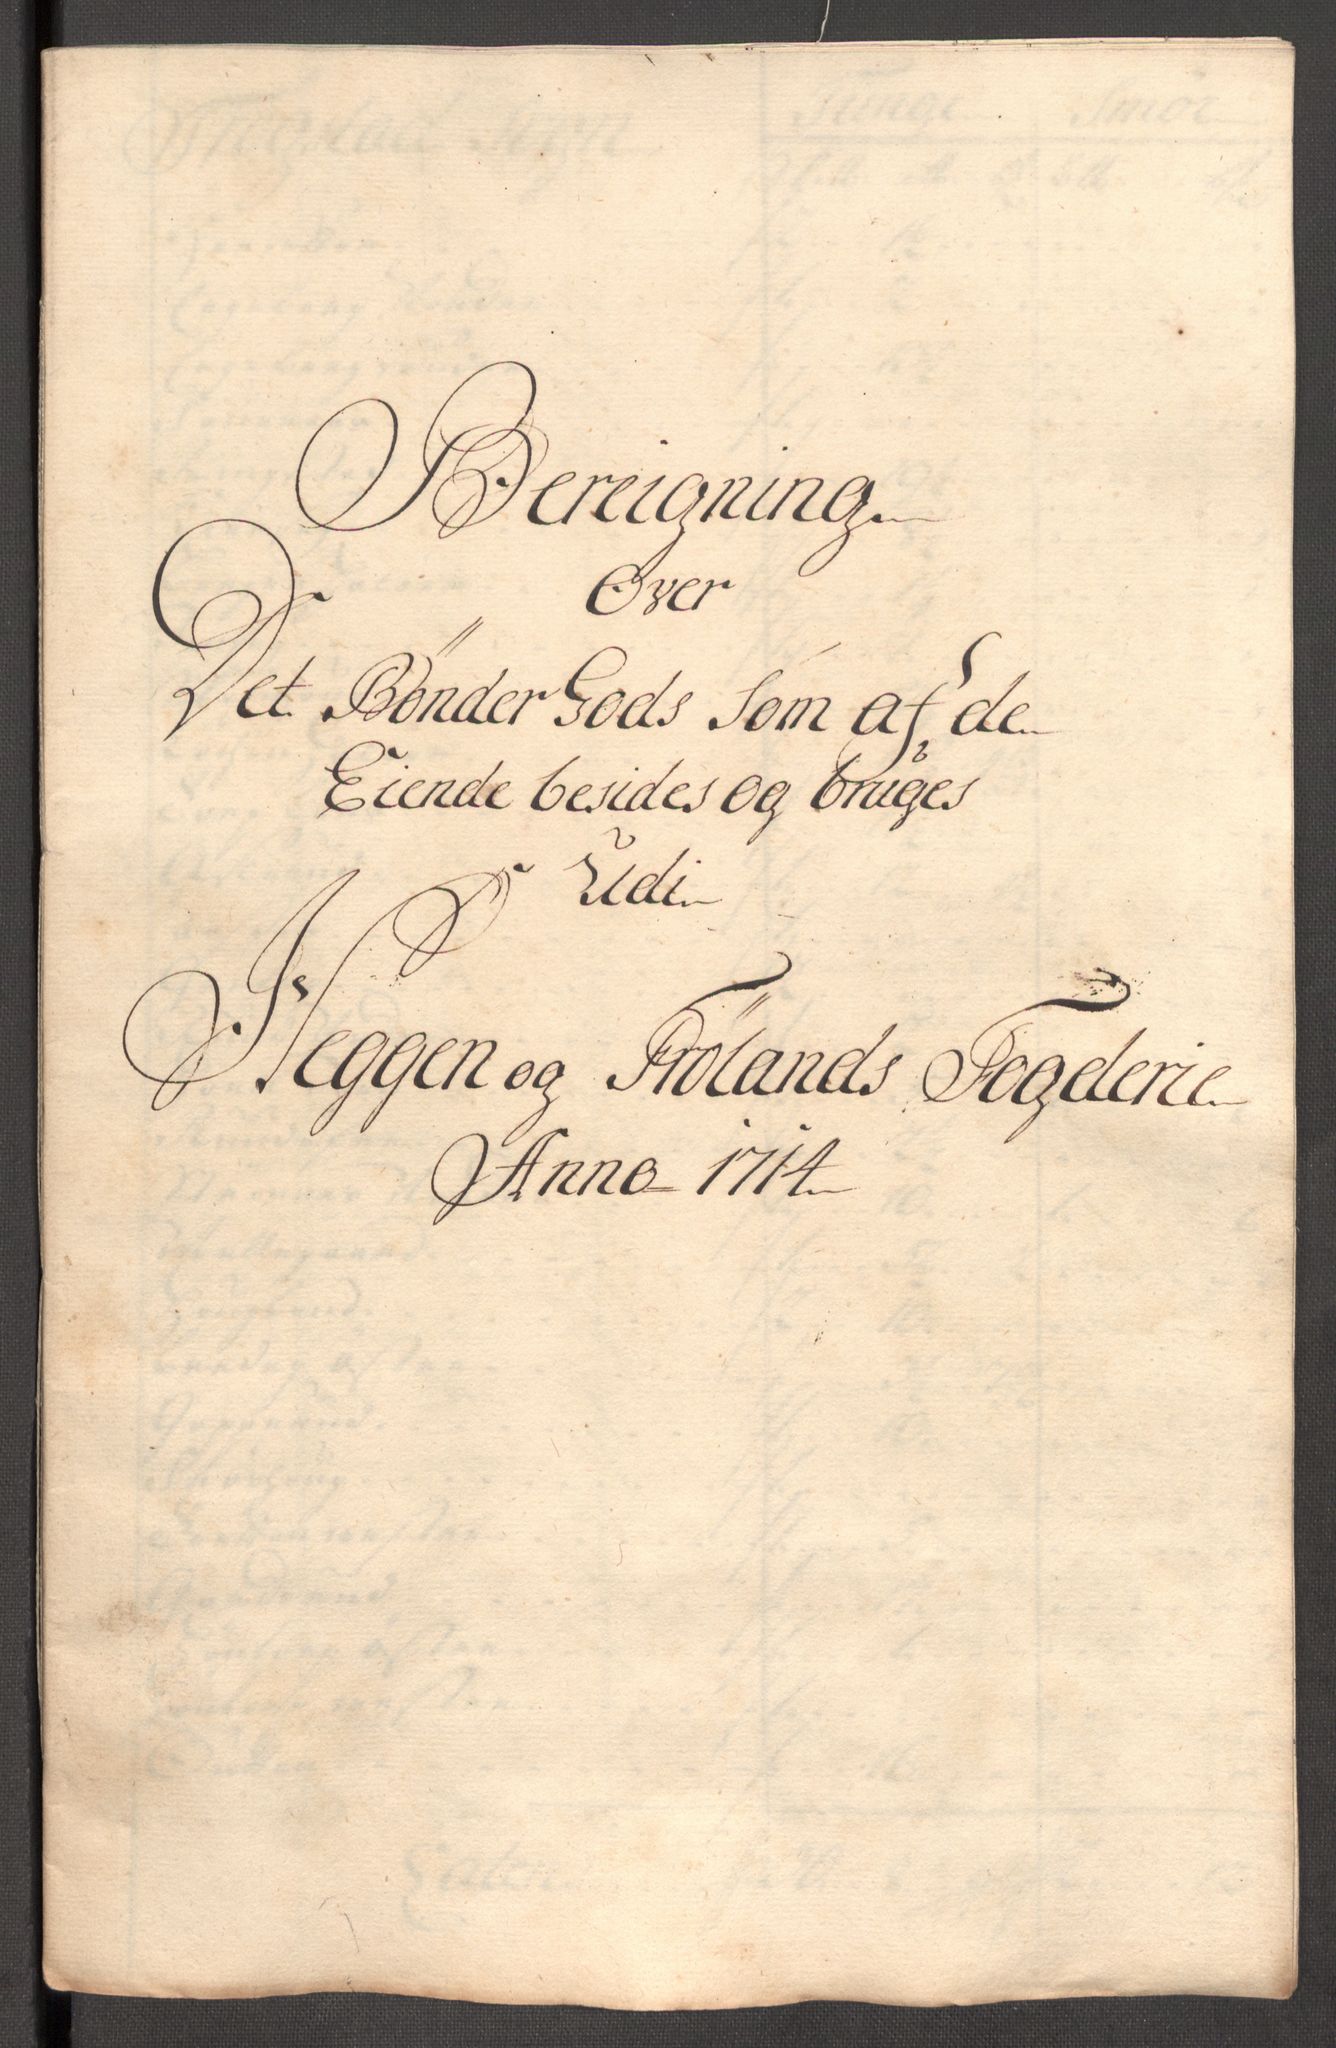 Bereigning
Over
Det Bønder Gods som af de
Eiende besides og bruges
Udi
Heggen og Frølands Fogderie
Anno 1714